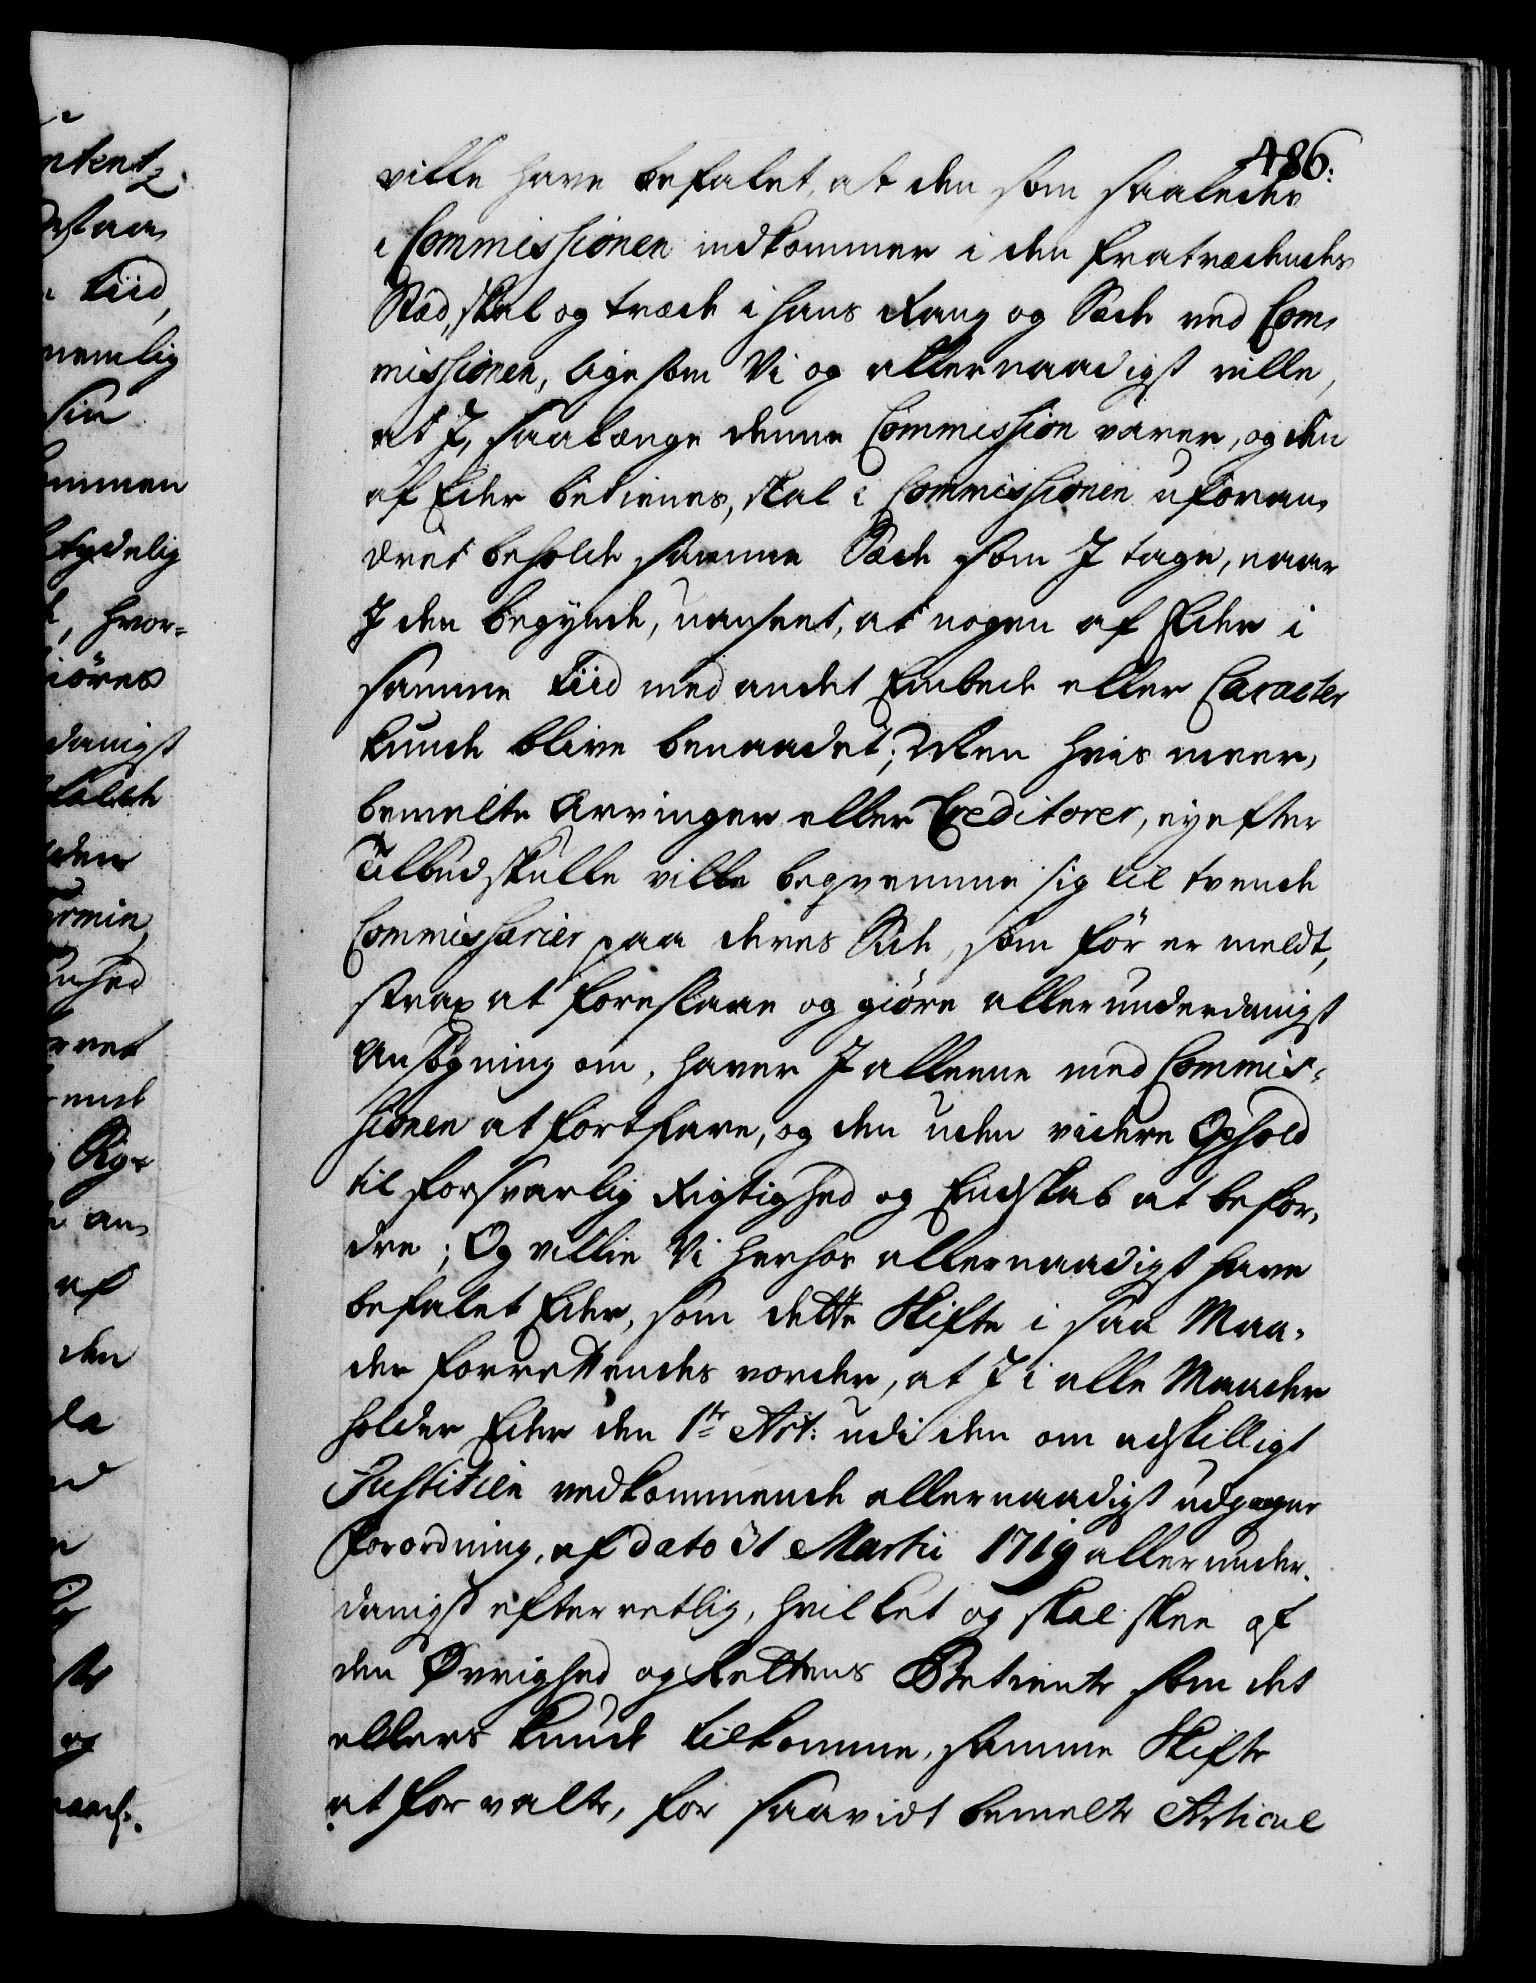 486.
ville have befalet, at den som saaledes
i Commissionen indkommer i den fratrædendes
Stæd, skal og træde i hans Rang og Sæde ved Com-
missionen, ligesom Vi og allernaadigst ville,
at I, saalænge denne Commission varer, og den
af Eder betienes, skal i Commissionen uforan-
dret beholde samme Sæde som I tage, naar
I den begynde, uanseet, at nogen af Eder i
samme Tiid med andet Embede eller Caracter
kunde blive benaadet; Men hvis meer-
bemelte Arvinger eller Creditorer, ey efter
Tilbud skulle ville beqvemme sig til tvende
Commissarier paa deres Side, som før er meldt,
strax at foreslaae og giøre allerunderdanigst
Ansøgning om, haver I alleene med Commis-
sionen at fortfare, og den uden videre Ophold
til forsvarlig Rigtighed og Endskab at befor-
dre; Og ville Vi herhos allernaadigst have
befalet Eder, som dette Skifte i saa Maa-
der forrettendes vorder, at I i alle Maader
holder Eder den 1te Art: udi den om adskilligt
Justitien vedkommende allernaadigst udgagne
Forordning, af dato 31 Martii 1719 allerunder-
danigst efterretlig, hvilket og skal skee af
den Øvrighed og Rettens Betiente som det
ellers kunde tilkomme, samme Skifte
at forvalte, for saavidt bemelte Articul